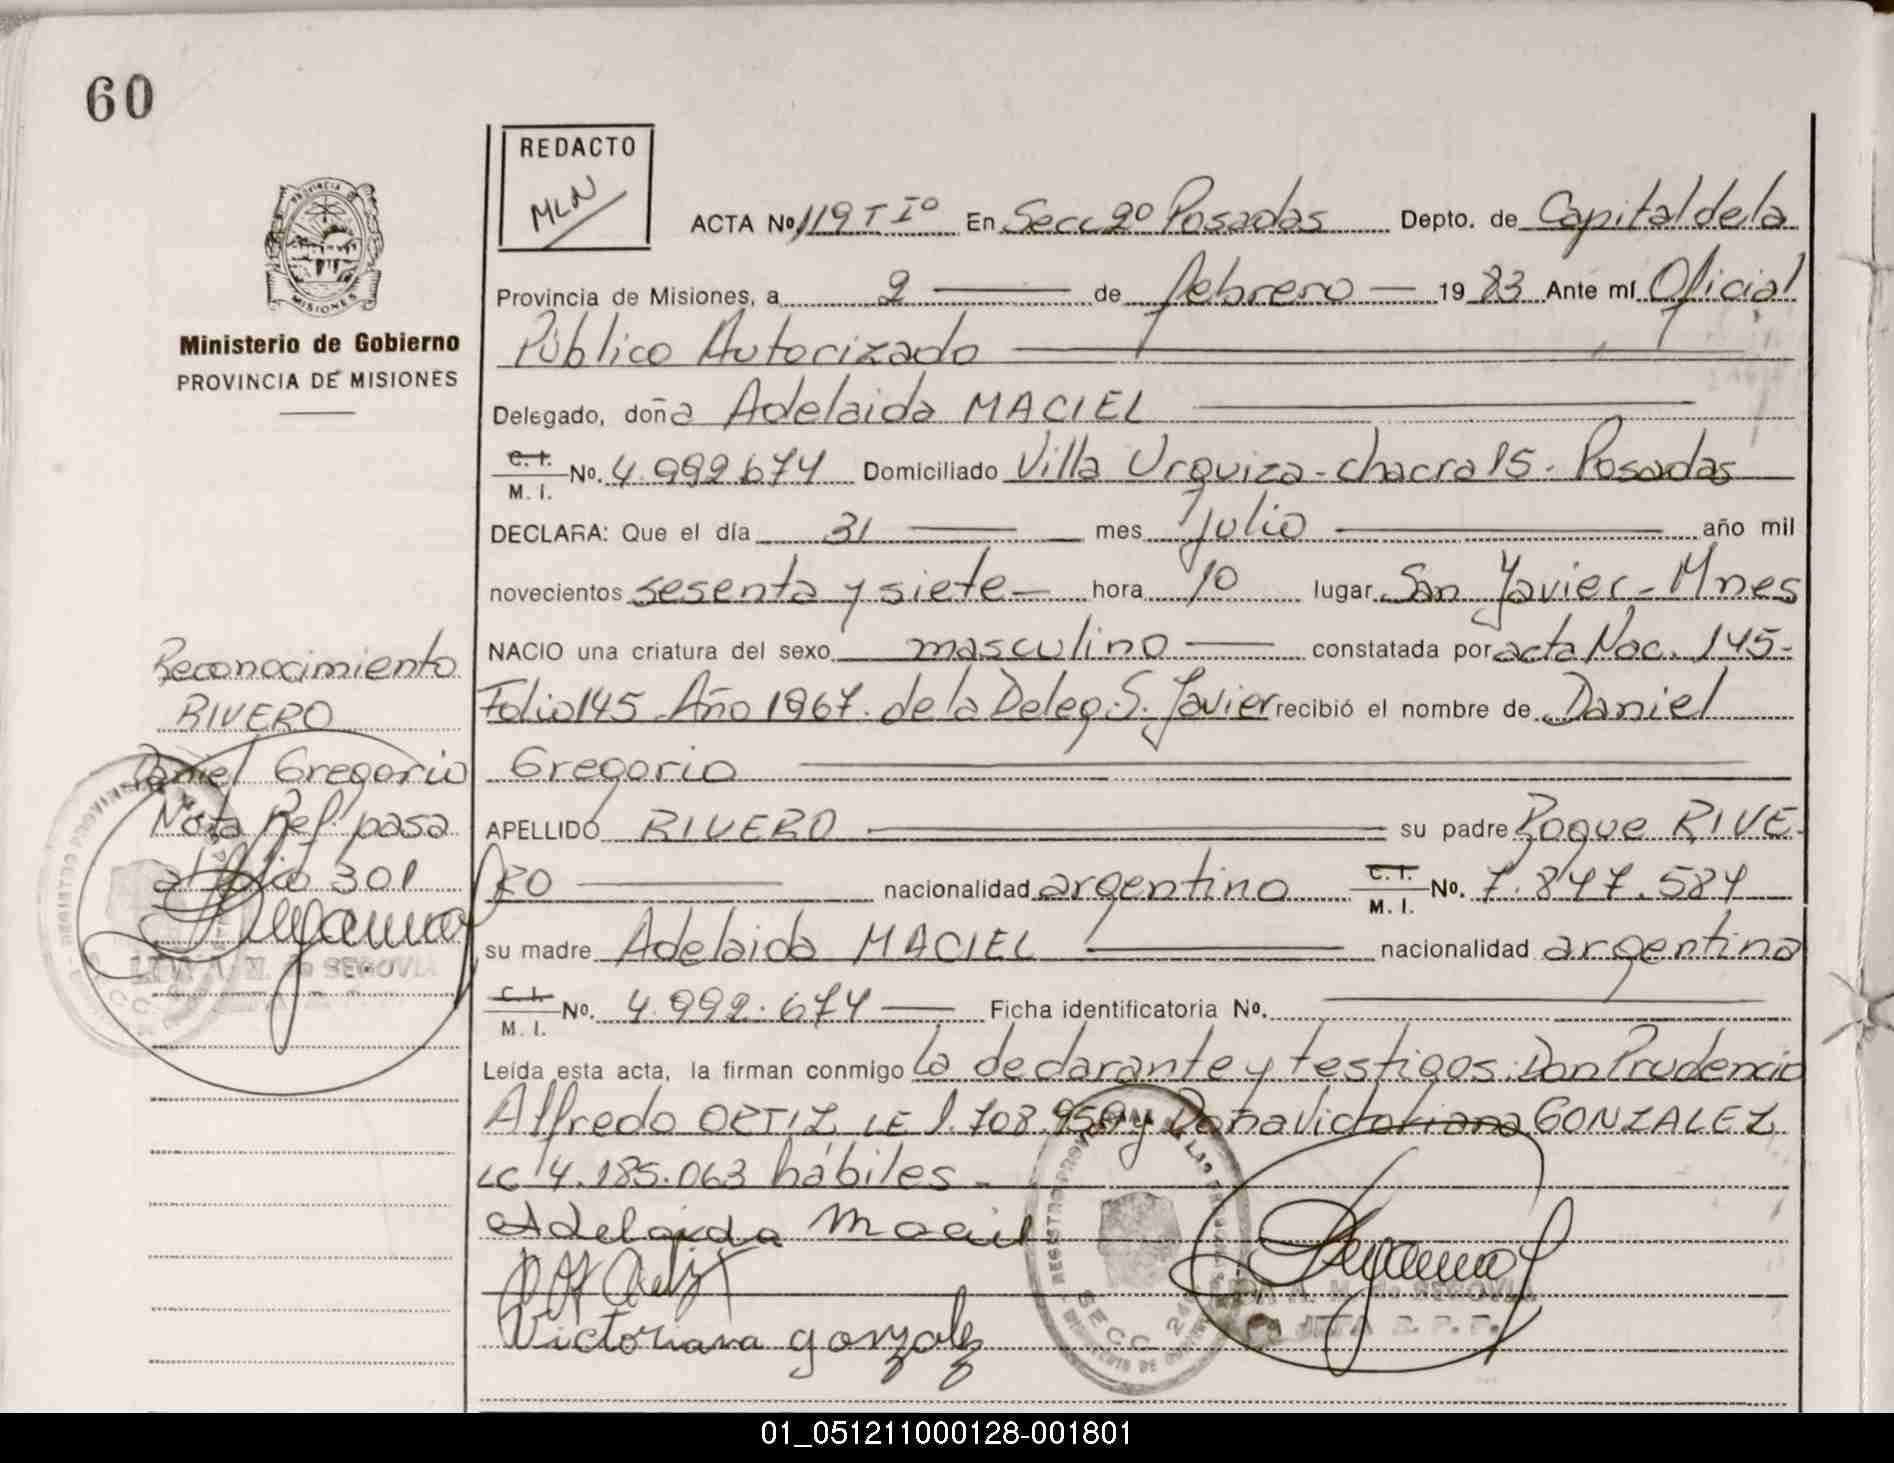 60
REDACTO
MLN
ACTA No 119 T Iº En Secc 2º Posadas Depto. de Capital de la
Provincia de Misiones, a 2 de febrero 19 83 Ante mí Oficial
Público Autorizado
Delegado, doña Adelaida MACIEL
C. I. M. I. No. 4.992.674 Domiciliado Villa Urquiza - chacra 15 - Posadas
DECLARA: Que el día 31 mes Julio año mil
novecientos sesenta y siete hora 10 lugar San Javier - Mnes
NACIO una criatura del sexo masculino constatada por acta Nac. 145-
Folio 145 Año 1967. de la Deleg. S. Javier recibió el nombre de Daniel
Gregorio
APELLIDO RIVERO su padre Roque RIVE-
RO nacionalidad argentino C. I. M. I. No. 7.847.584
su madre Adelaida MACIEL nacionalidad argentina
C. I. M. I. No. 4.992.674 Ficha identificatoria No.
Leída esta acta, la firman conmigo la declarante y testigos: Don Prudencio
Alfredo ORTIZ LE 1.708.959 y Doña Victoriana GONZALEZ
LC 4.185.063 hábiles -
Adelaida Maciel
Victoriana gonzalez
A. M. de SEGOVIA
JEFA
SECC 2
Ministerio de Gobierno
PROVINCIA DE MISIONES
Reconocimiento
RIVERO
Daniel Gregorio
Nota Ref pasa
al folio 301
A. M. de SEGOVIA
01_051211000128-001801